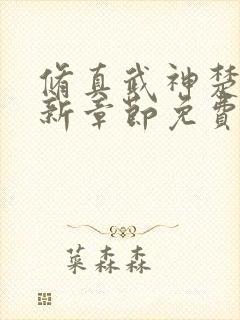 脩真武神楚
新章節免費
菜森森